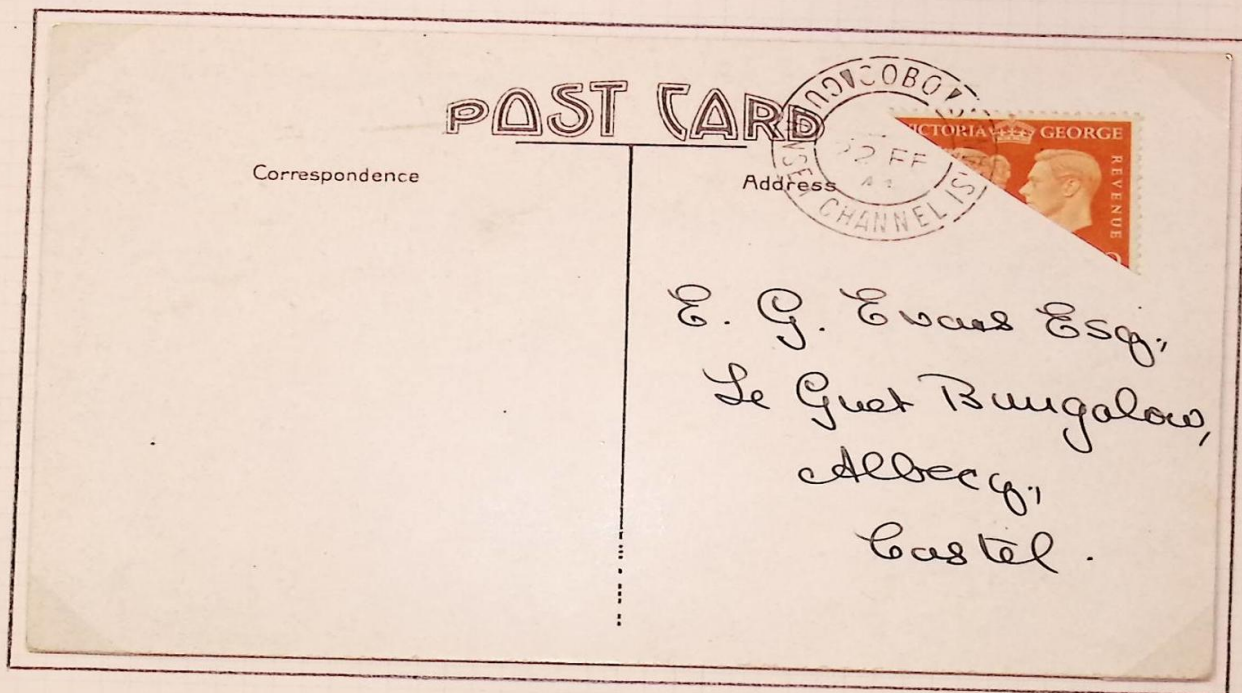 POST CARD
Correspondence
Address
COBO
GUERNSEY CHANNEL IS.
12 FE
41
VICTORIA GEORGE
REVENUE
E. G. Evans Esq.,
Le Guet Bungalow,
Albecq,
Castel.